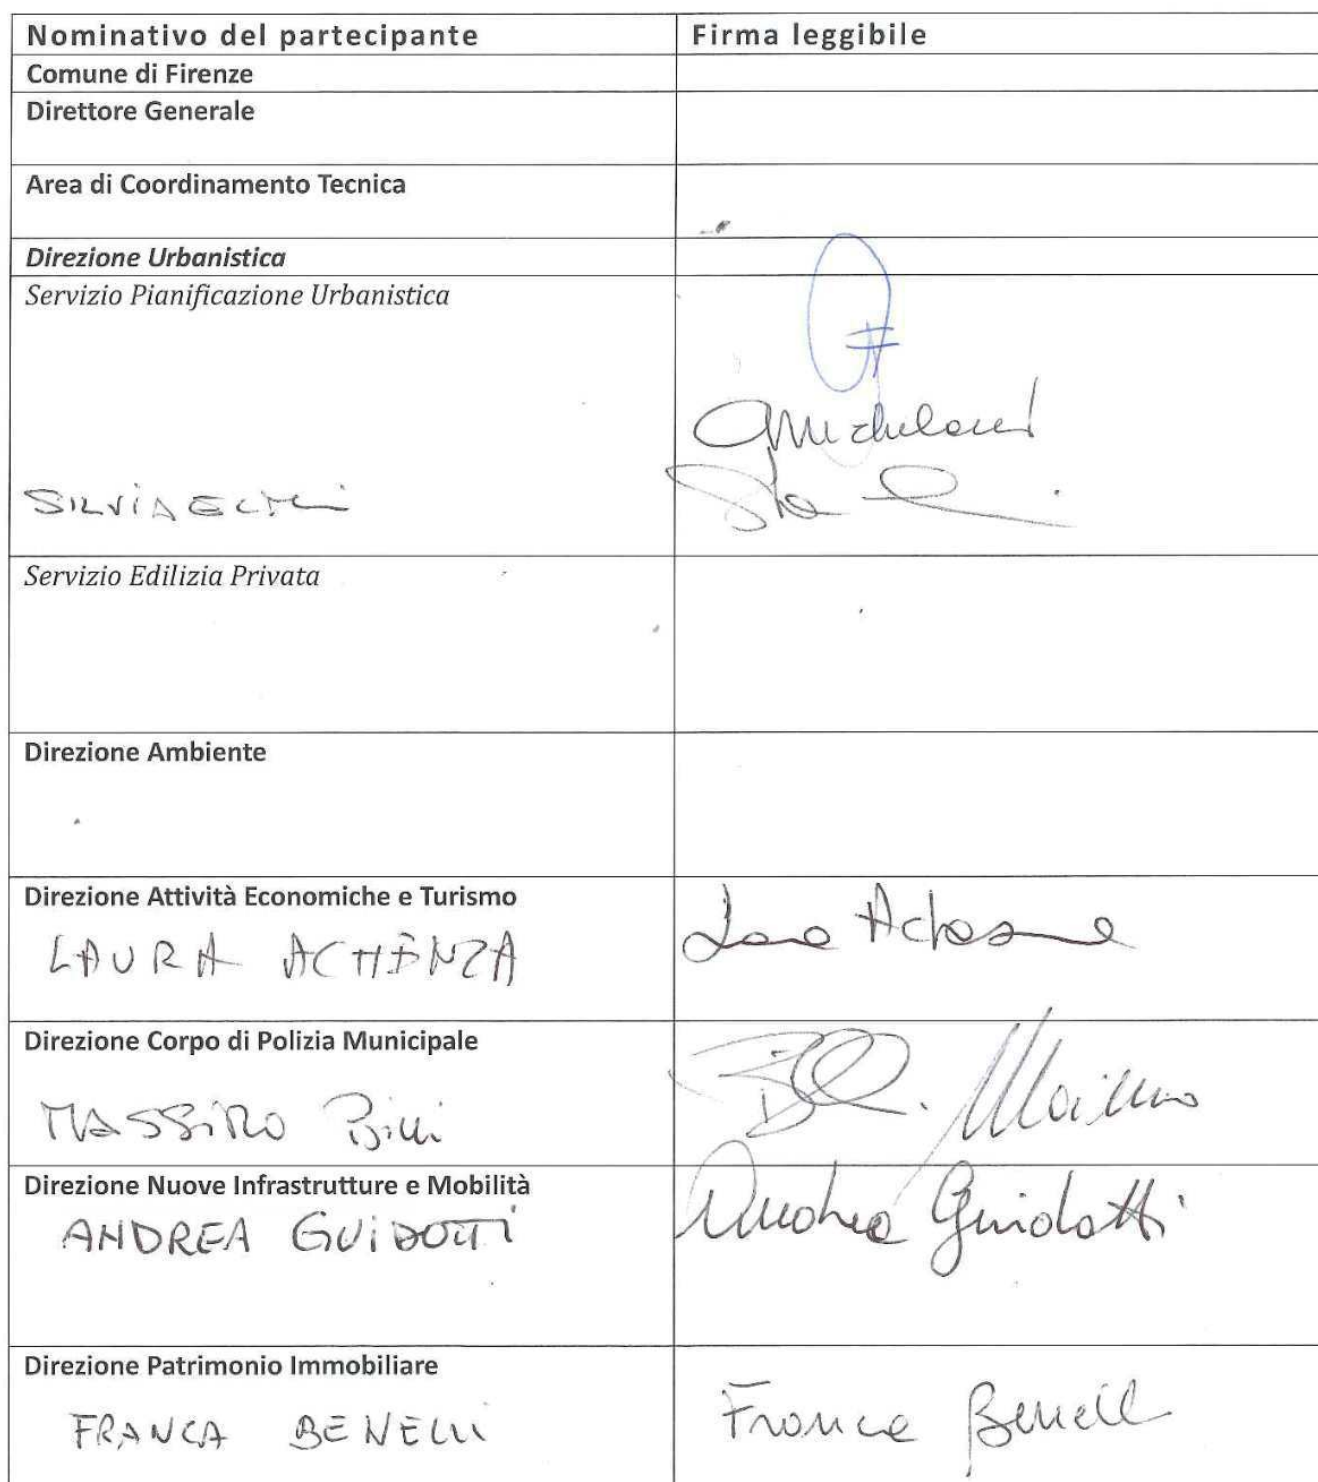 Nominativo del partecipante Firma leggibile
Comune di Firenze
Direttore Generale
Area di Coordinamento Tecnica
Direzione Urbanistica
Servizio Pianificazione Urbanistica
SILVIA
Servizio Edilizia Privata
Direzione Ambiente
Direzione Attività Economiche e Turismo
LAURA ACHENZA
Direzione Corpo di Polizia Municipale
MASSIMO
Direzione Nuove Infrastrutture e Mobilità
ANDREA GUIDOTTI Andrea Guidotti
Direzione Patrimonio Immobiliare
FRANCA BENELLI Franca Benelli